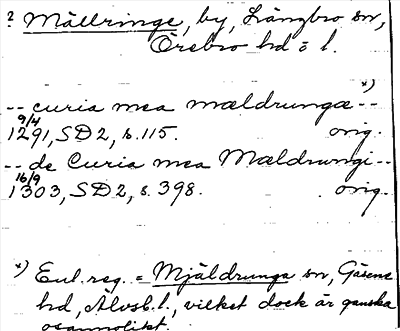 ? Mällringe, by, Långbro sn,
Örebro hd o l.
*)
-- curia mea mældrungæ --
9/4
1291, SD2, s. 115. orig.
-- de Curia mea Mældrungi --
16/9
1303, SD2, s. 398. orig.
*) Enl. reg. = Mjäldrunga sn, Gäsene
hd, Älvsb. l., vilket dock är ganska
osannolikt.